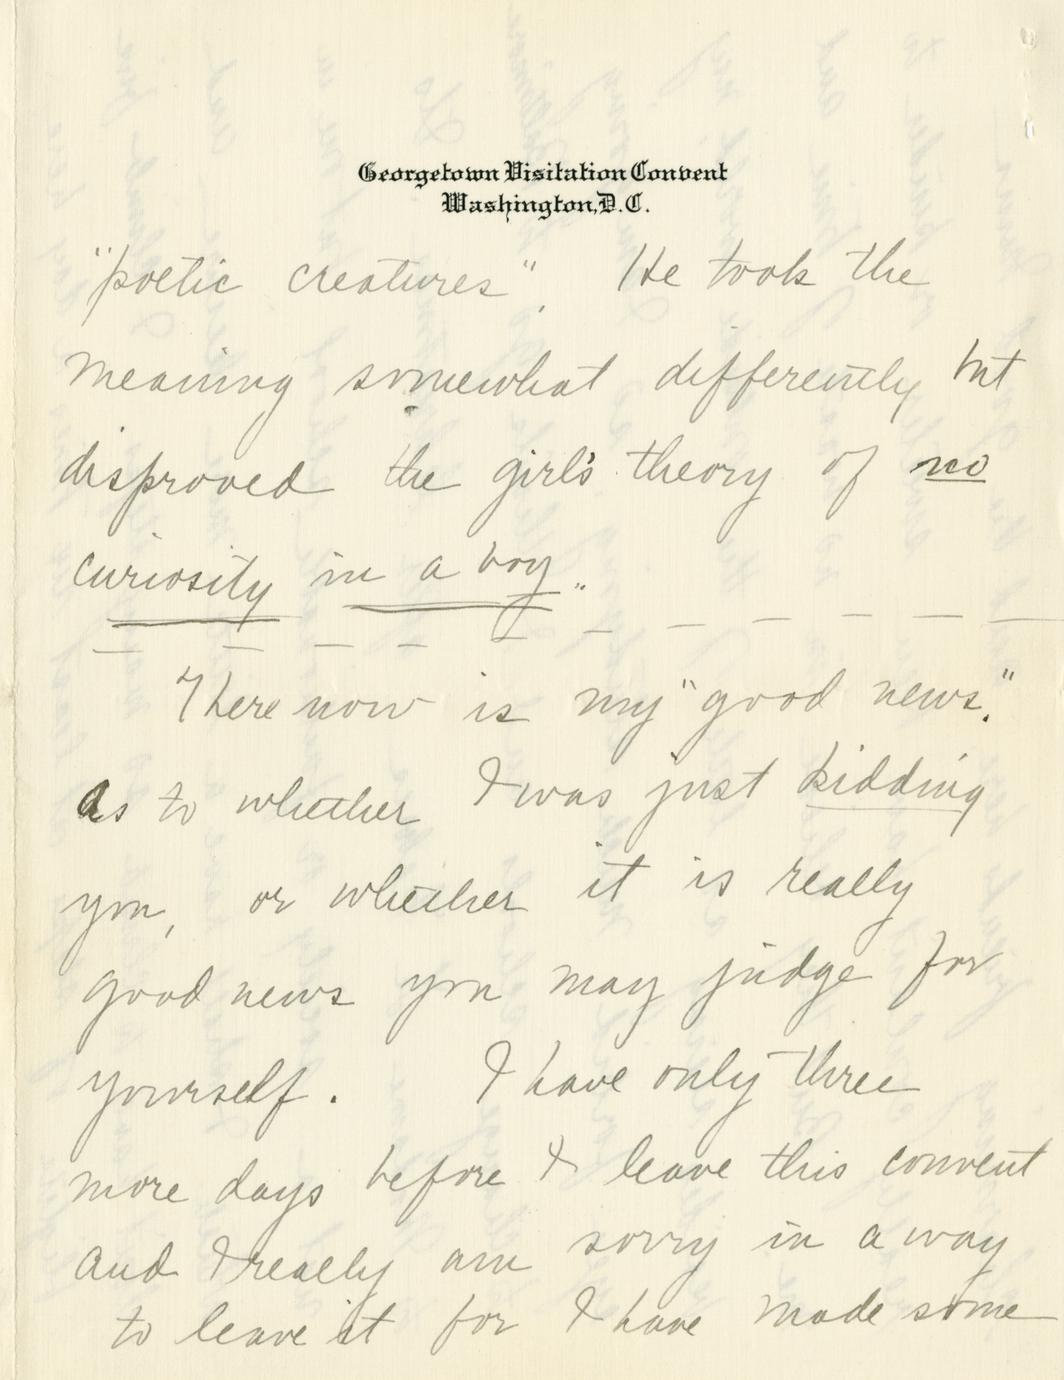 Georgetown Visitation Convent
Washington, D.C.
"poetic creatures". He took the
meaning somewhat differently but
disproved the girl's theory of no
curiosity in a boy.
There now is my "good news."
As to whether I was just kidding
you, or whether it is really
good news you may judge for
yourself. I have only three
more days before I leave this convent
and I really am sorry in a way
to leave it for I have made some